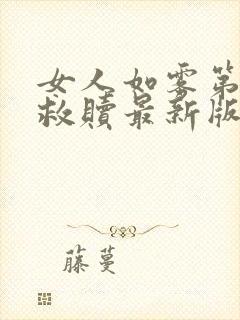 女人如雾第
救赎最新版
藤蔓